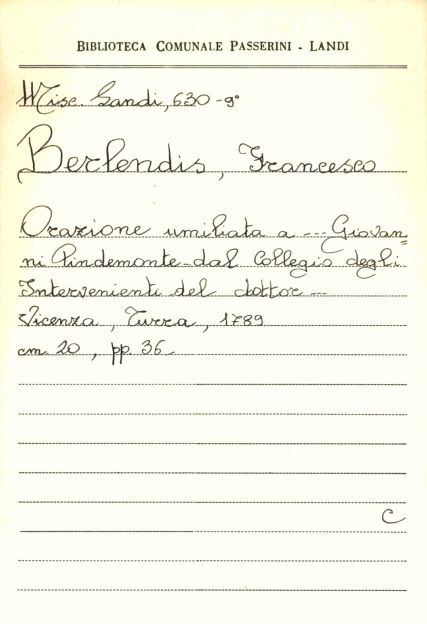 BIBLIOTECA COMUNALE PASSERINI - LANDI
Misc. Landi, 630 - 9°
Berlendis, Francesco
Orazione umiliata a --- Giovan=
ni Pindemonte dal Collegio degli
Intervenienti del dottor ---
Vicenza, Turra, 1789
cm. 20, pp. 36.
C